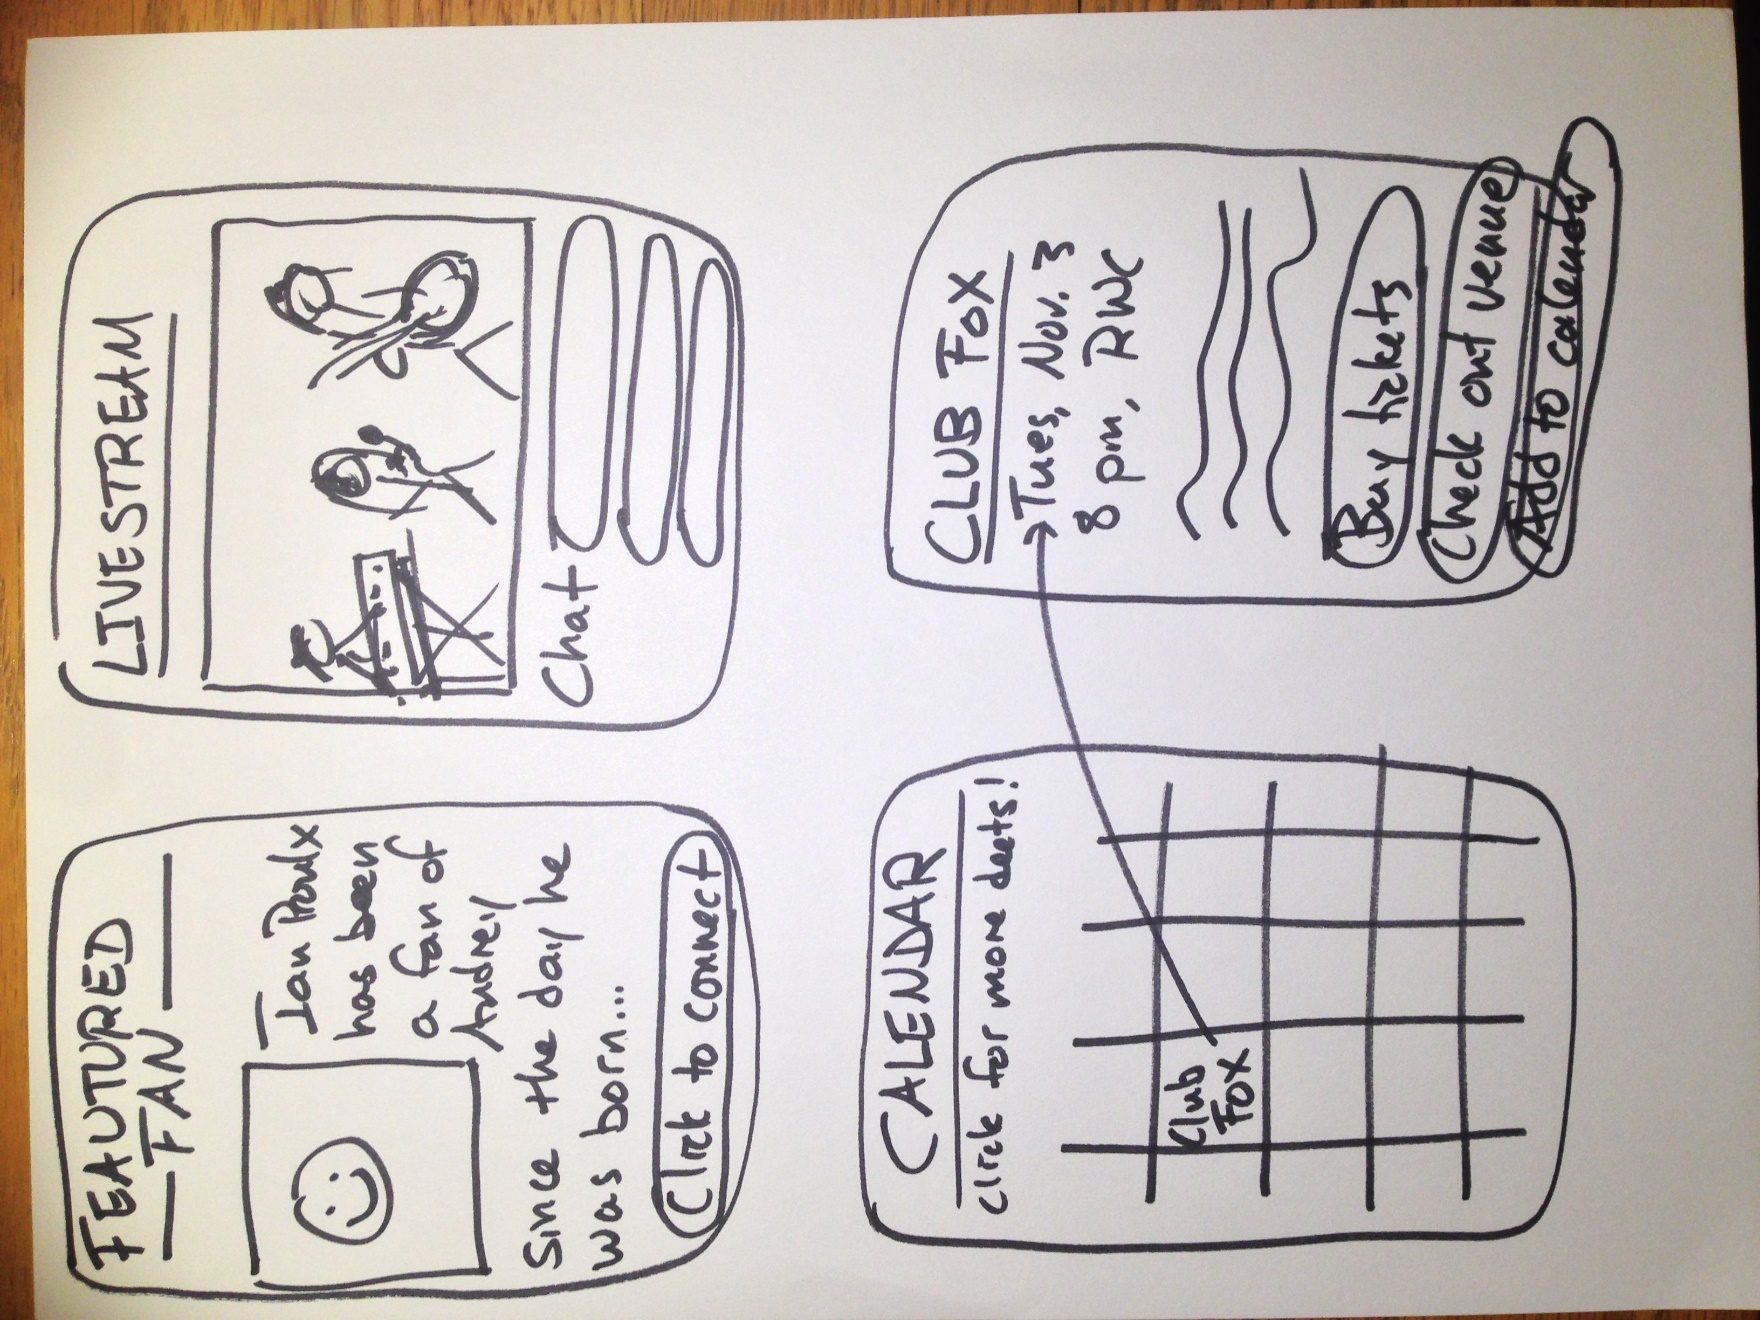 FEAUTURED
FAN
Ian Proulx
has been
a fan of
Andrey
Since the day he
was born...
Click to connect
LIVESTREAM
Chat
CALENDAR
click for more deets!
Club
Fox
CLUB FOX
Tues, Nov. 3
8 pm, RWC
Buy tickets
Check out venue
Add to calendar